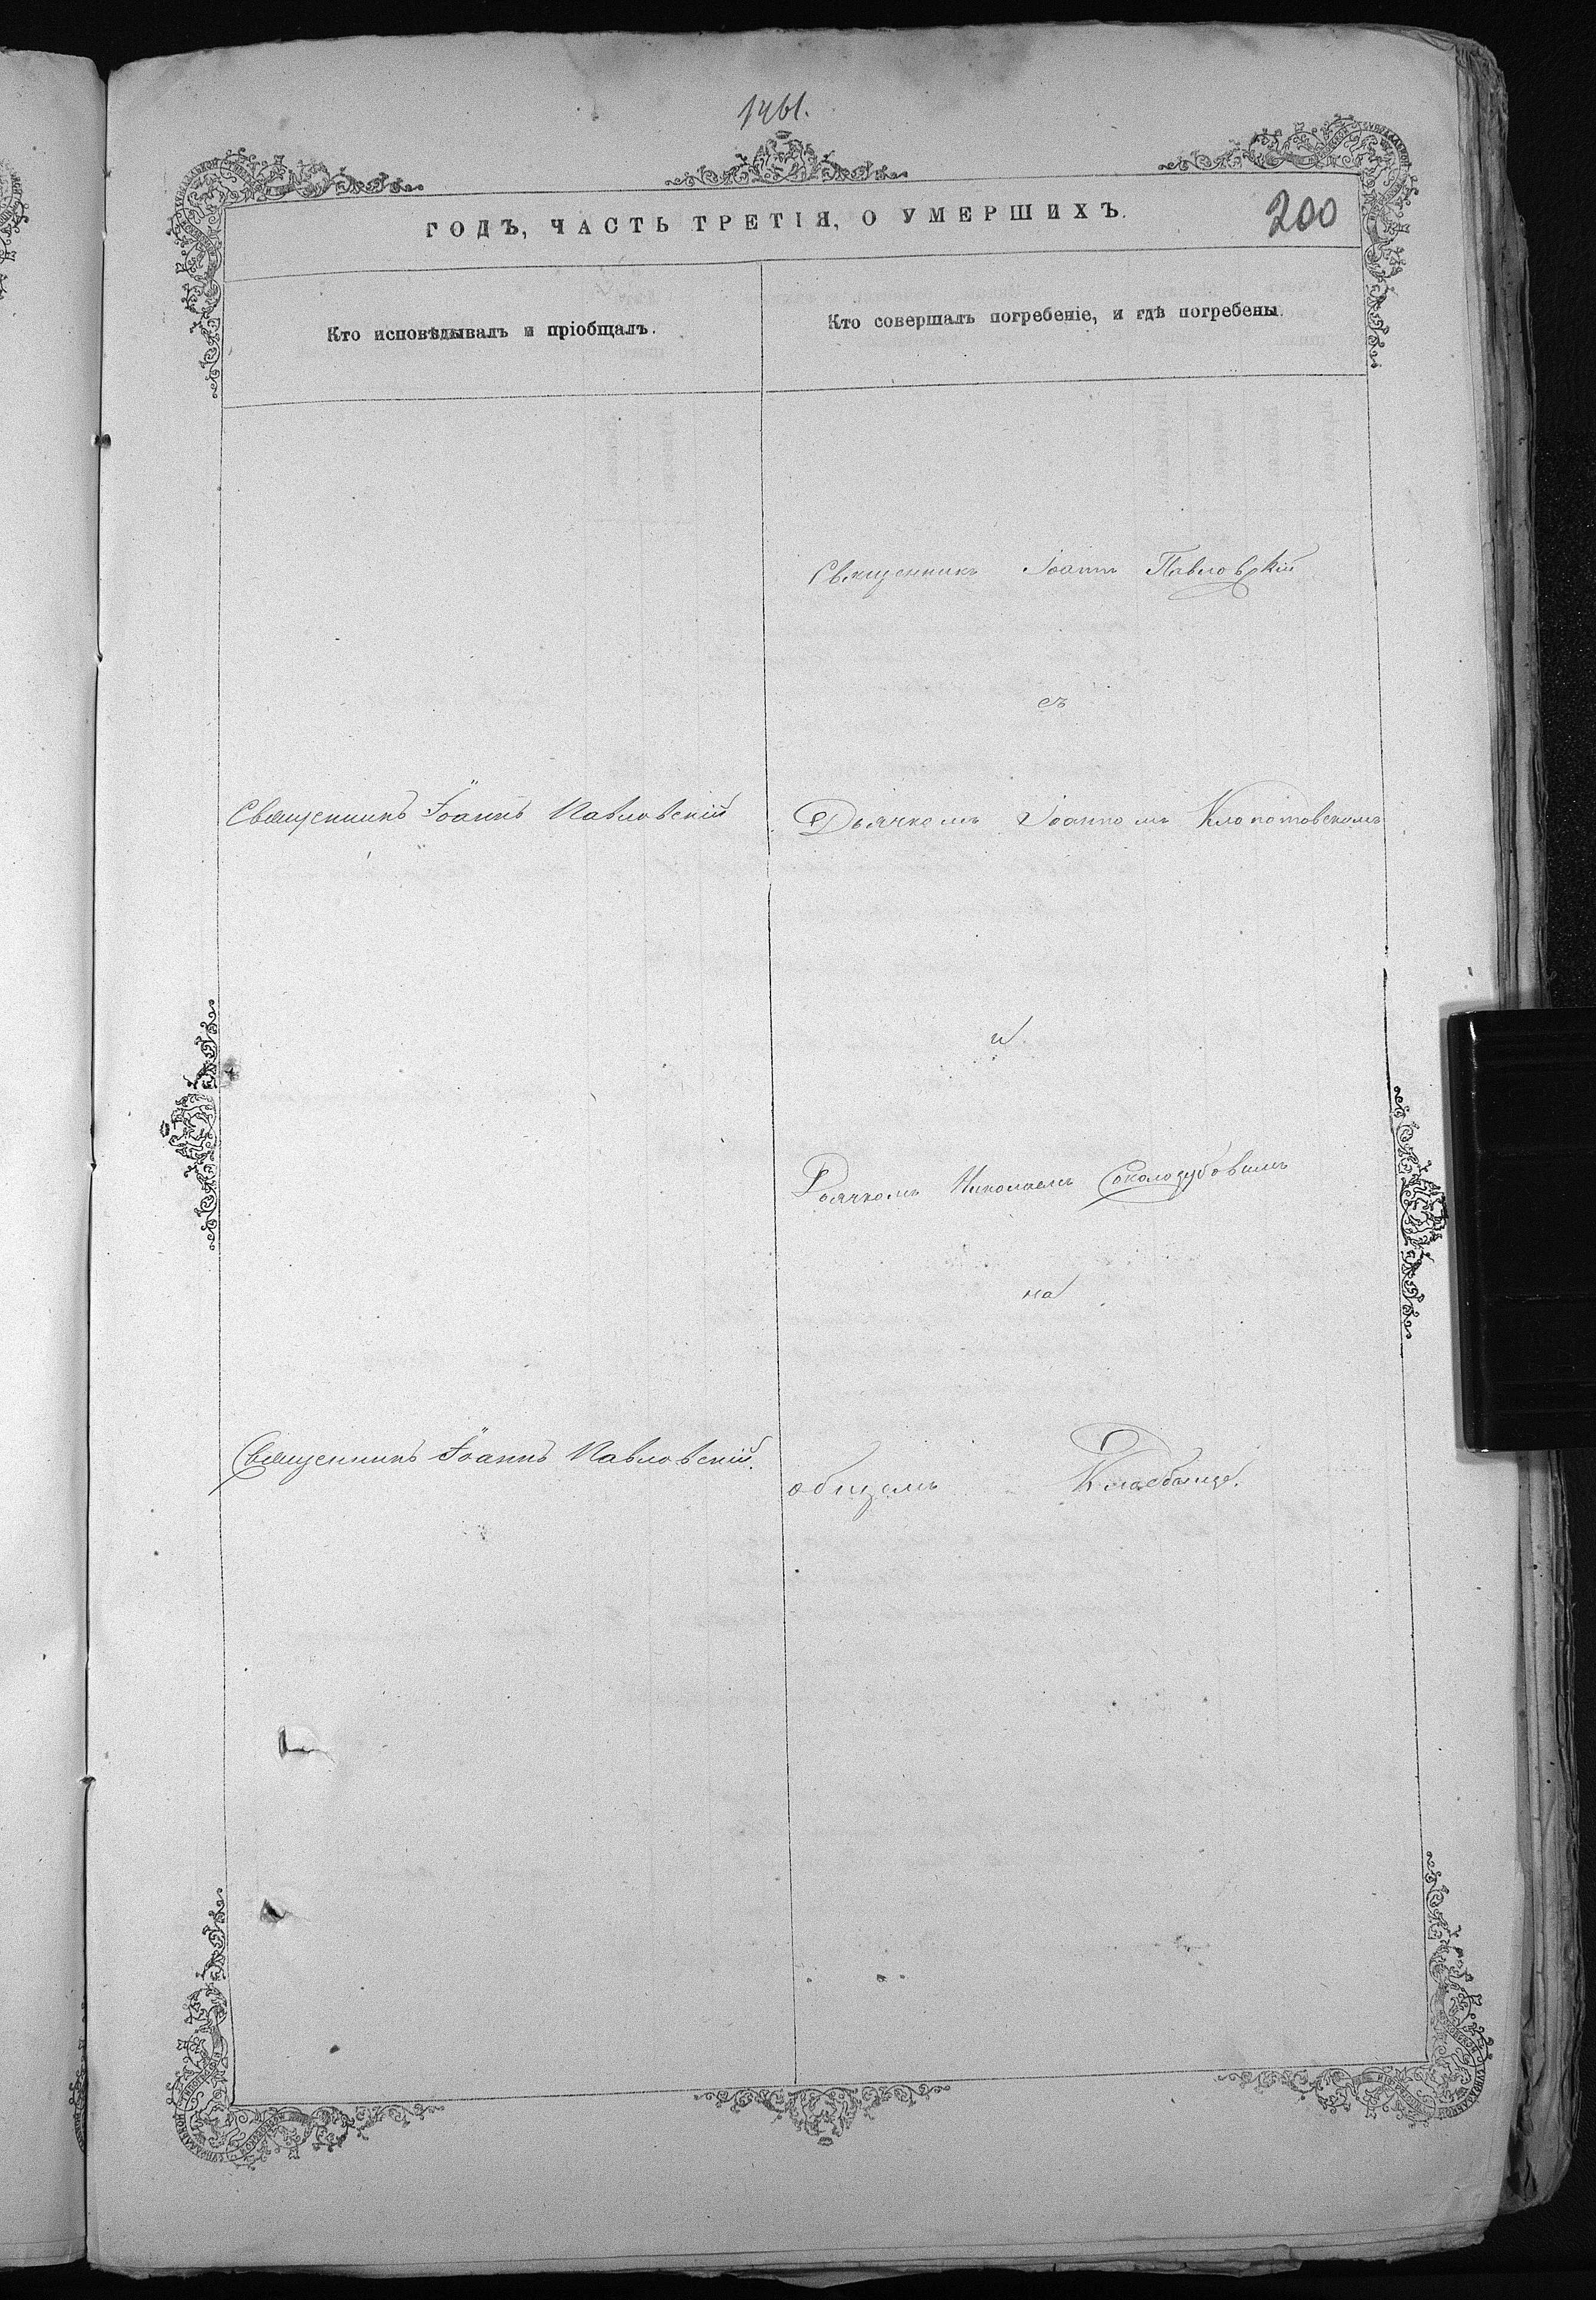 1461.
ГОДЪ, ЧАСТЬ ТРЕТІЯ, О УМЕРШИХЪ.
200
Кто исповѣдывалъ и пріобщалъ.
Кто совершалъ погребеніе, и гдѣ погребены.
Священникъ Іоаннъ Павловскій
съ
Священникъ Іоаннъ Павловскій
Дьячкомъ Іоанномъ Клопотовскимъ
и
Дьячкомъ Николаемъ
на
Священникъ Іоаннъ Павловскій.
общемъ Кладбищѣ.